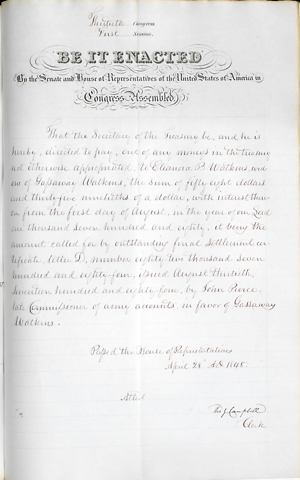 Thirtieth Congress
First Session.
BE IT ENACTED
By the Senate and House of Representatives of the United States of America in
Congress Assembled,
That the Secretary of the Treasury be, and he is
hereby, directed to pay, out of any money in the treasury
not otherwise appropriated, to Eleanora B. Watkins, wid
ow of Gassaway Watkins, the sum of fifty eight dollars
and thirty five ninetieths of a dollar, with interest there
on from the first day of August, in the year of our Lord
one thousand seven hundred and eighty, it being the
amount called for by outstanding final settlement cer
tificate, letter D, number eighty two thousand seven
hundred and eighty four, issued August thirtieth,
seventeen hundred and eighty four, by John Pierce,
late Commissioner of army accounts, in favor of Gassaway
Watkins.
Passed the House of Representatives
April 28 A.D. 1848.
Attest
Campbell
Clerk